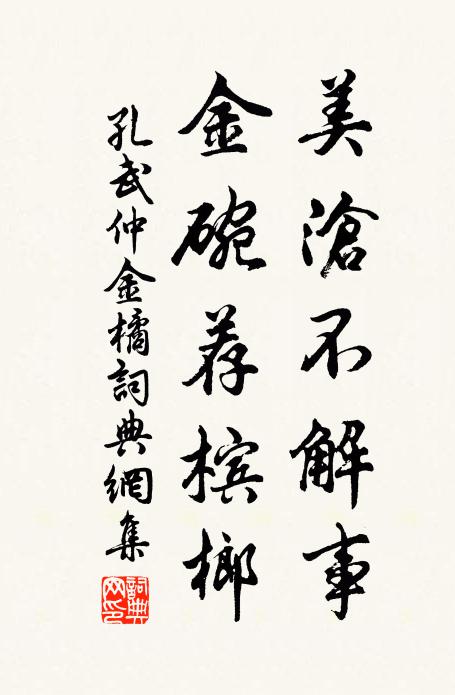 美滄不解事
金碗荐槟榔
孔武仲金橘詞典網集
詞典网印